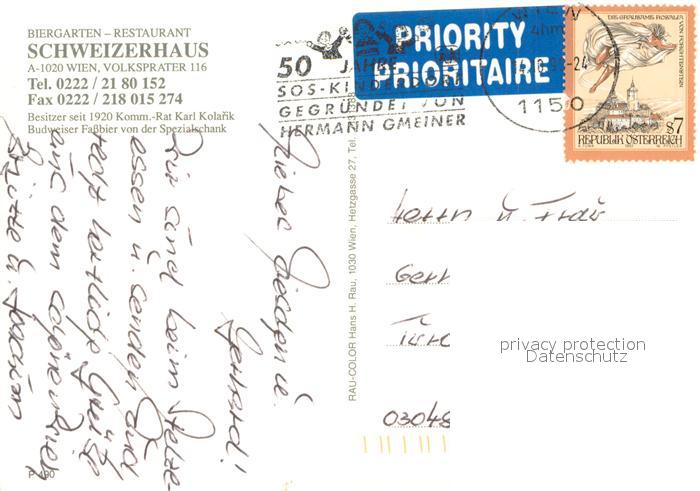 BIERGARTEN – RESTAURANT
SCHWEIZERHAUS
A-1020 WIEN, VOLKSPRATER 116
Tel. 0222 / 21 80 152
Fax 0222 / 218 015 274
Besitzer seit 1920 Komm.-Rat Karl Kolařik
Budweiser Faßbier von der Spezialschank
50 JAHRE
SOS-KINDERDORF
GEGRÜNDET VON
HERMANN GMEINER
PRIORITY
PRIORITAIRE
WIEN
1150
DIE GRAUSAME ROSALIA
VON FORCHTENSTEIN
S7
REPUBLIK ÖSTERREICH
Gerhard!
Wir sind beim Stelze-
essen u. senden Euch
recht herzliche Grüße
aus dem schönen Wien
RAU-COLOR Hans H. Rau, 1030 Wien, Hetzgasse 27, Tel.
Herrn u. Frau
Gerr
03048
privacy protection
Datenschutz